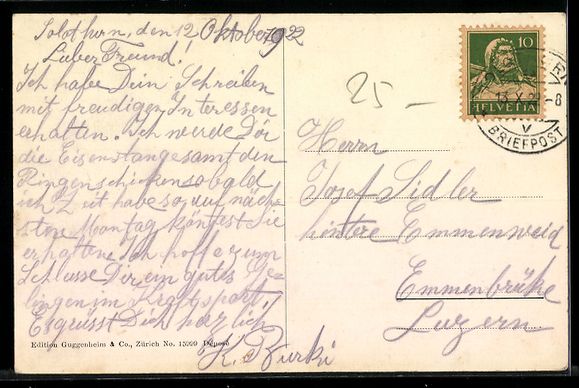 Solothurn, den 12 Oktober 1922
Lieber Freund!
Ich habe Dein Schreiben
mit freudigen Interessen
erhalten. Ich werde Dir
die Eisenstange samt den
Ringen schicken sobald
ich Zeit habe so, auf näch-
sten Moontag köntest Sie
erhalten. Ich hoffe zum
Schlusse Dir, ein gutes Ge-
lingen im Kraftsport,
Es grüsst Dich herzlich
K. Burki
Edition Guggenheim & Co., Zürich No. 15999 Déposé
25 –
10
HELVETIA
BRIEFPOST
Herrn
Josef Sidler
hintere Emmenweid
Emmenbrüke
Luzern